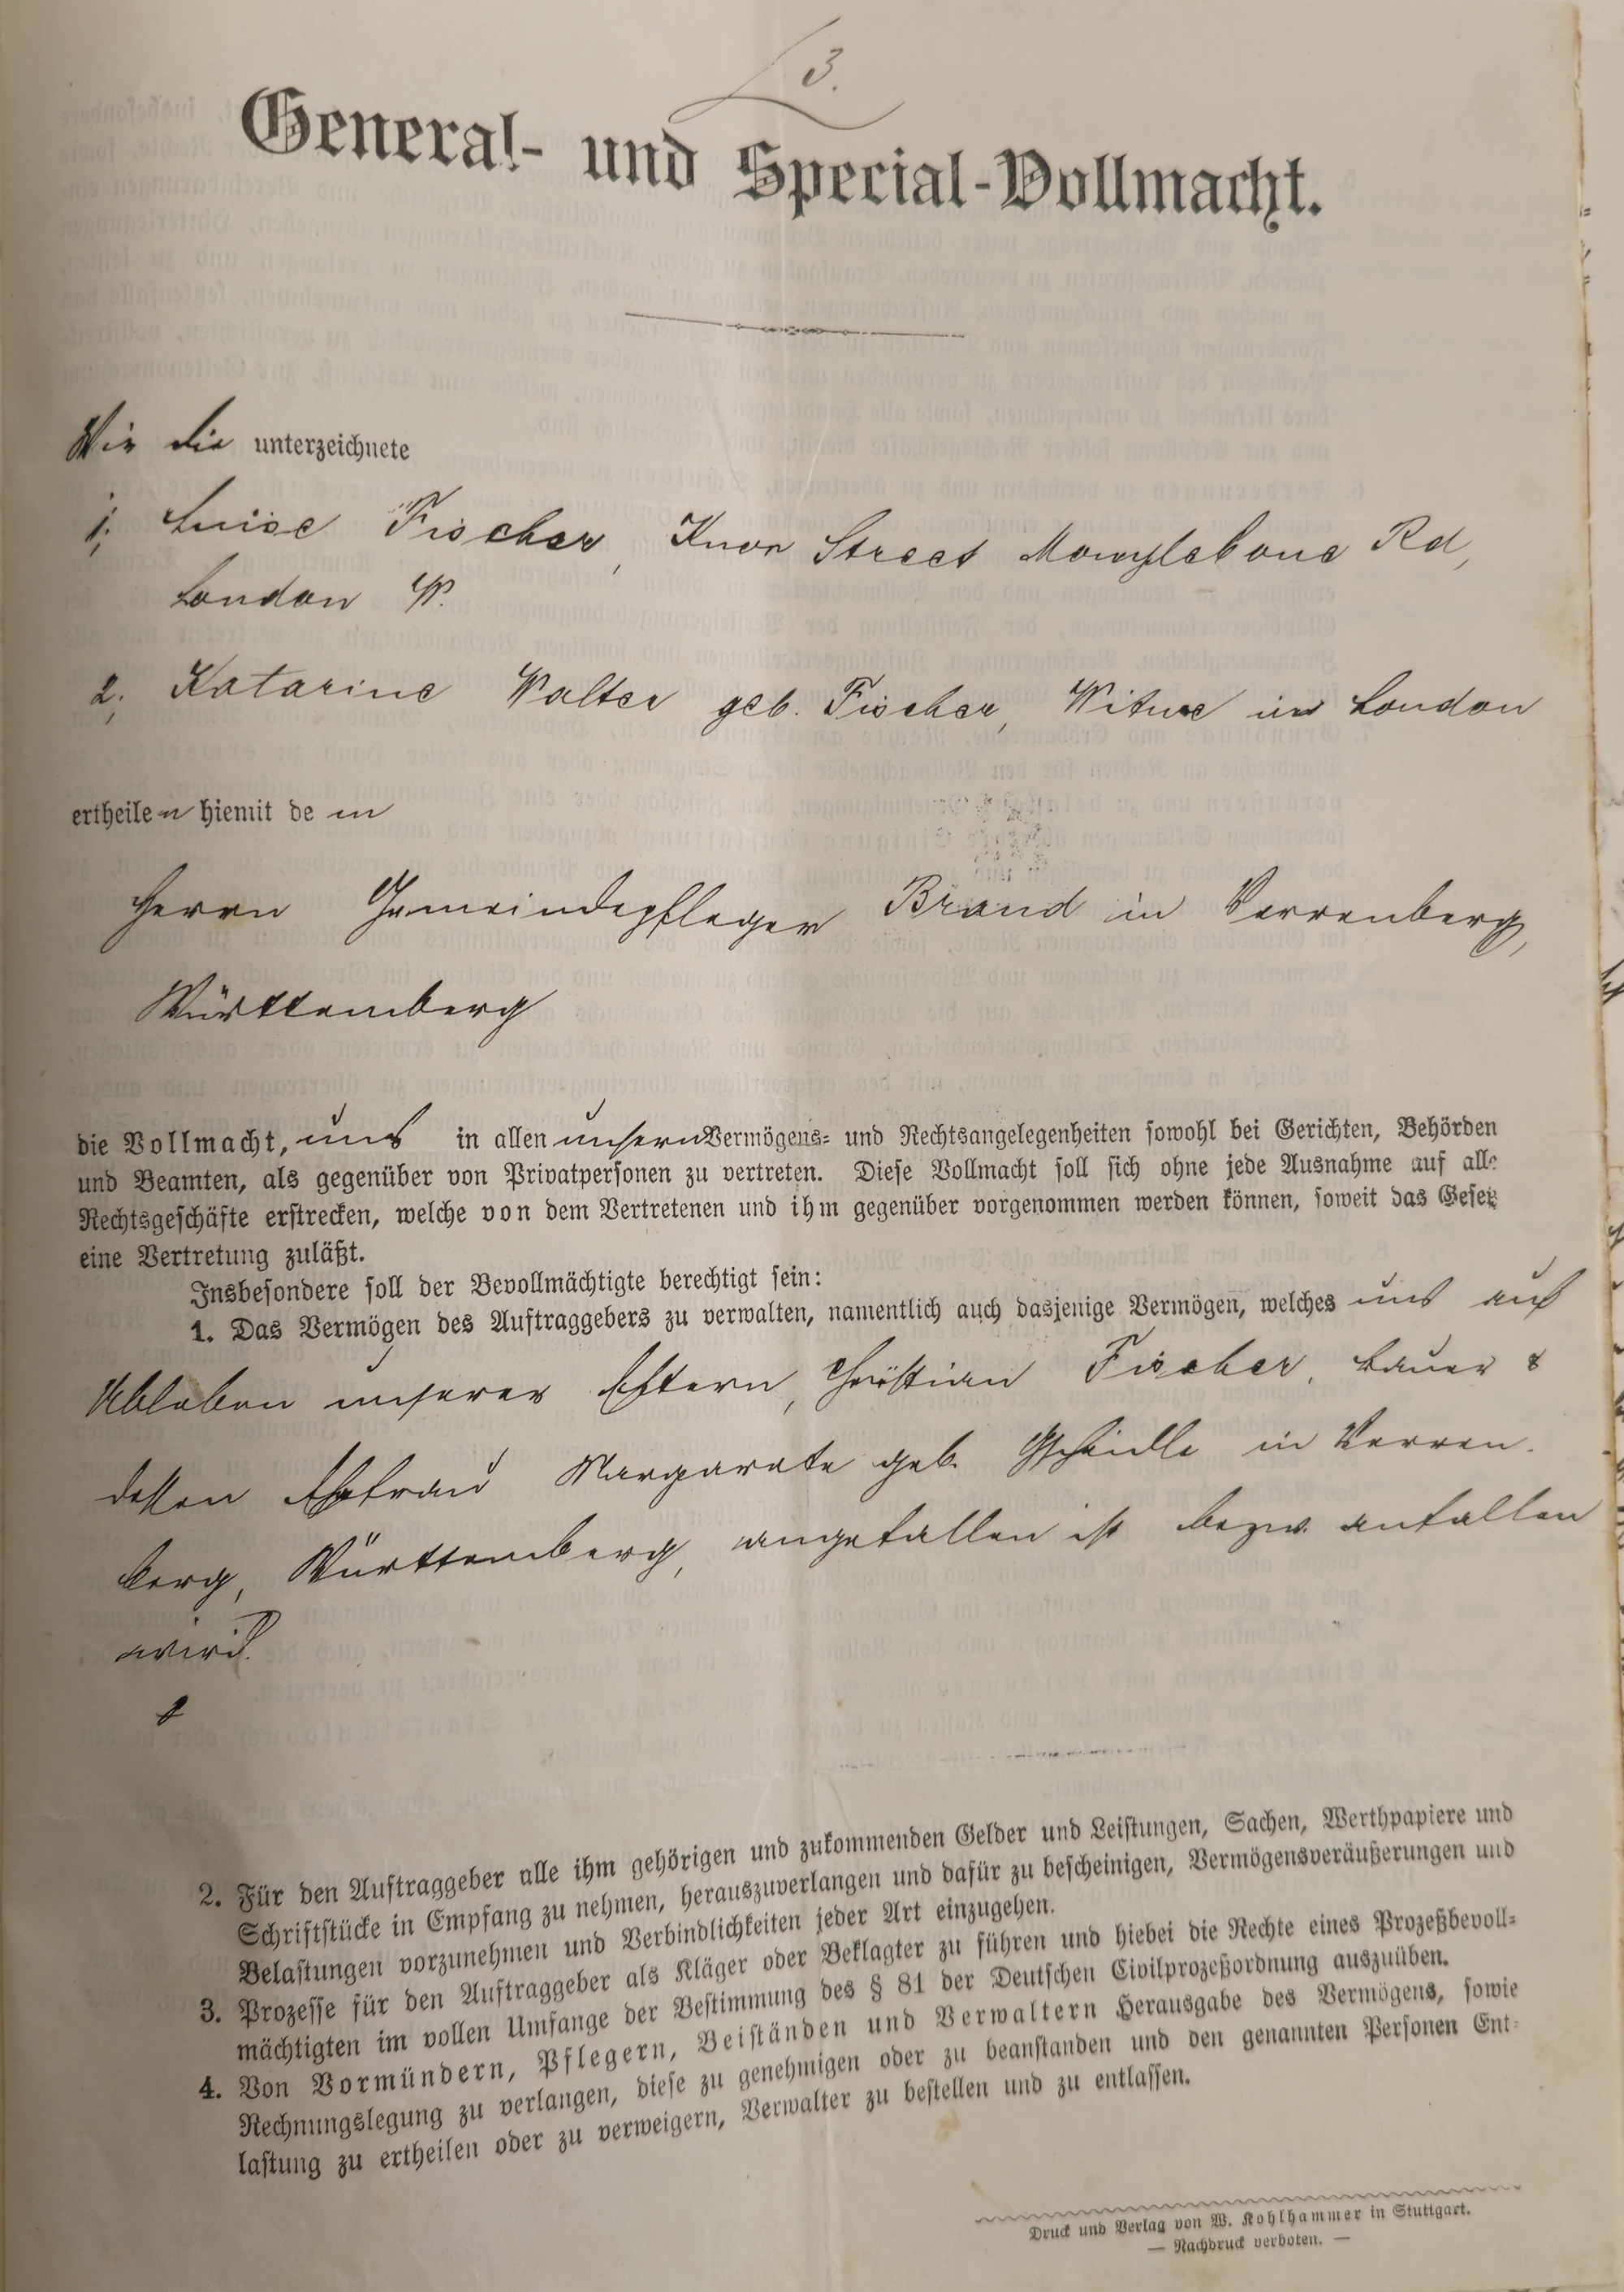 3.
General- und Special-Vollmacht.
Wir die unterzeichnete
1; Luise Fischer, Knox Street Marylebone Rd,
London W.
2; Katarine Walter geb. Fischer, Witwe in London
ertheilen hiemit dem
Herrn Gemeindepfleger Brand in Verrenberg,
Württemberg
die Vollmacht, uns in allen unsern Vermögens- und Rechtsangelegenheiten sowohl bei Gerichten, Behörden
und Beamten, als gegenüber von Privatpersonen zu vertreten. Diese Vollmacht soll sich ohne jede Ausnahme auf alle
Rechtsgeschäfte erstrecken, welche von dem Vertretenen und ihm gegenüber vorgenommen werden können, soweit das Gesetz
eine Vertretung zuläßt.
Insbesondere soll der Bevollmächtigte berechtigt sein:
1. Das Vermögen des Auftraggebers zu verwalten, namentlich auch dasjenige Vermögen, welches uns auf
Ableben unserer Eltern, Christian Fischer, Bauer &
dessen Ehefrau Margarete geb. Gscheidle in Verren-
berg, Württemberg, angefallen ist bezw. anfallen
wird.
2. Für den Auftraggeber alle ihm gehörigen und zukommenden Gelder und Leistungen, Sachen, Werthpapiere und
Schriftstücke in Empfang zu nehmen, herauszuverlangen und dafür zu bescheinigen, Vermögensveräußerungen und
Belastungen vorzunehmen und Verbindlichkeiten jeder Art einzugehen.
3. Prozesse für den Auftraggeber als Kläger oder Beklagter zu führen und hiebei die Rechte eines Prozeßbevoll-
mächtigten im vollen Umfange der Bestimmung des § 81 der Deutschen Civilprozeßordnung auszuüben.
4. Von Vormündern, Pflegern, Beiständen und Verwaltern Herausgabe des Vermögens, sowie
Rechnungslegung zu verlangen, diese zu genehmigen oder zu beanstanden und den genannten Personen Ent-
lastung zu ertheilen oder zu verweigern, Verwalter zu bestellen und zu entlassen.
Druck und Verlag von W. Kohlhammer in Stuttgart.
— Nachdruck verboten. —